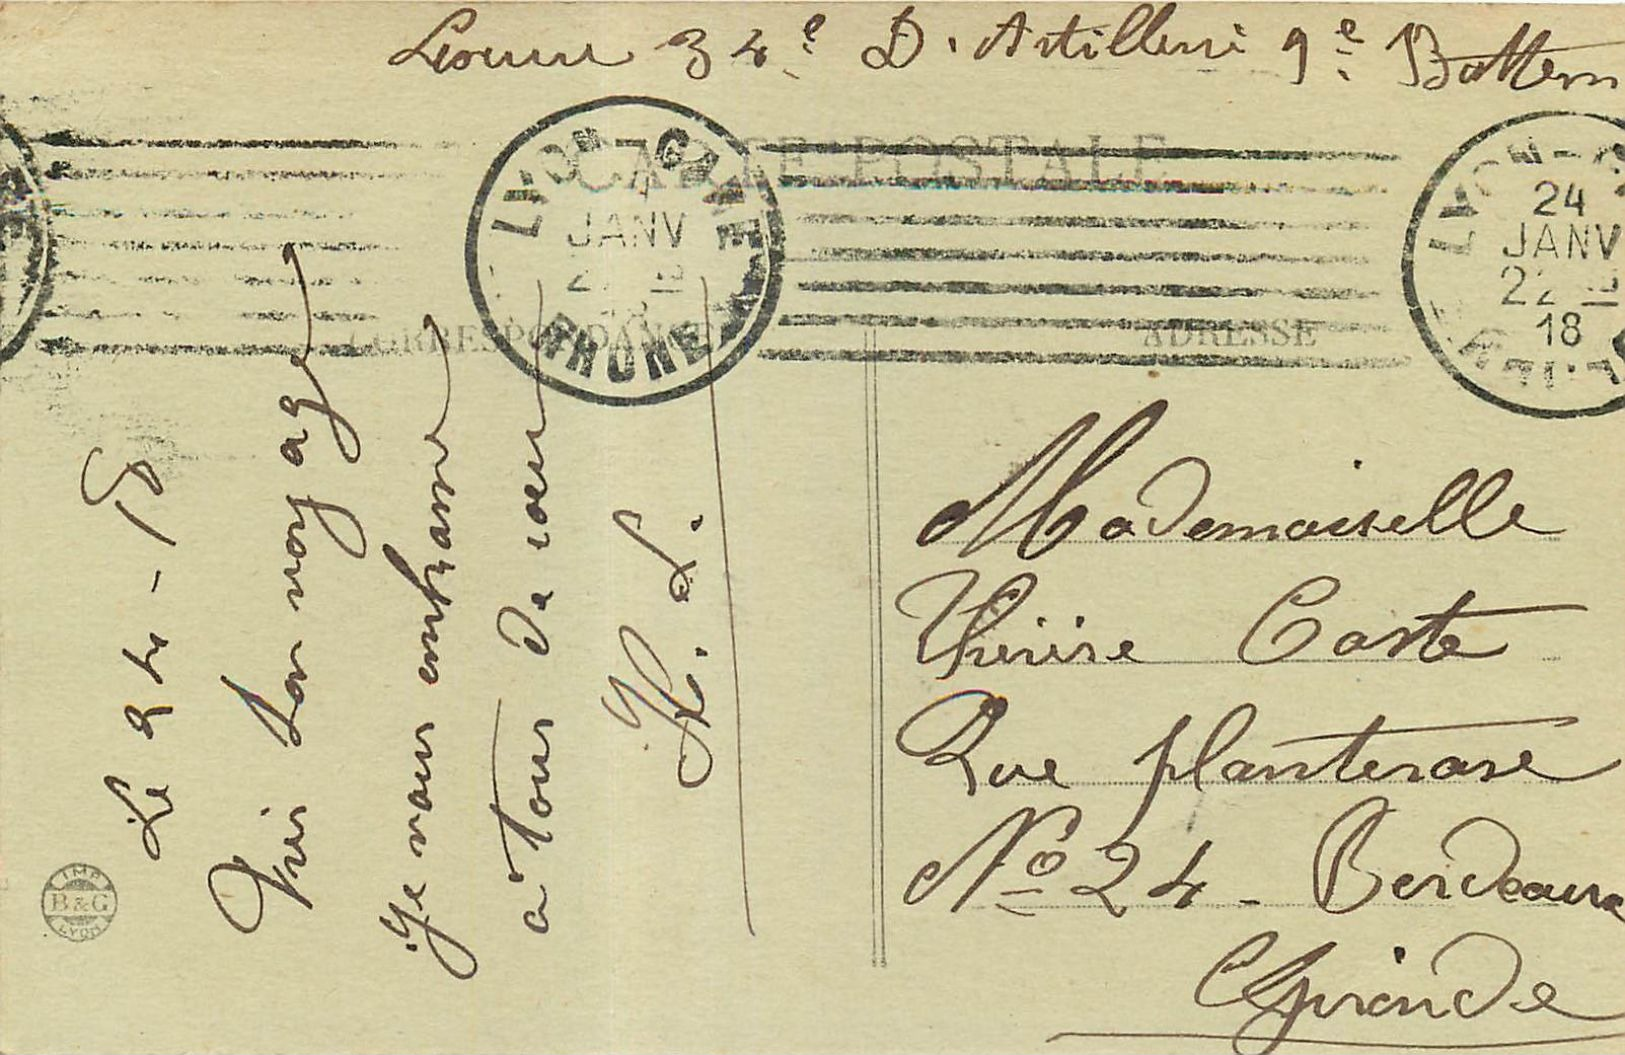 34e D. Artillerie 9e Batterie
CARTE POSTALE
LYON GARE
JANV
RHONE
LYON-G
24
JANV
22
18
CORRESPONDANCE
ADRESSE
Le 24-1-18
bon voyage
Je vous embrasse
à tous de cœur
L.
Mademoiselle
Thérèse Caste
Rue planterose
No 24 - Bordeaux
Gironde
IMP
B & G
LYON